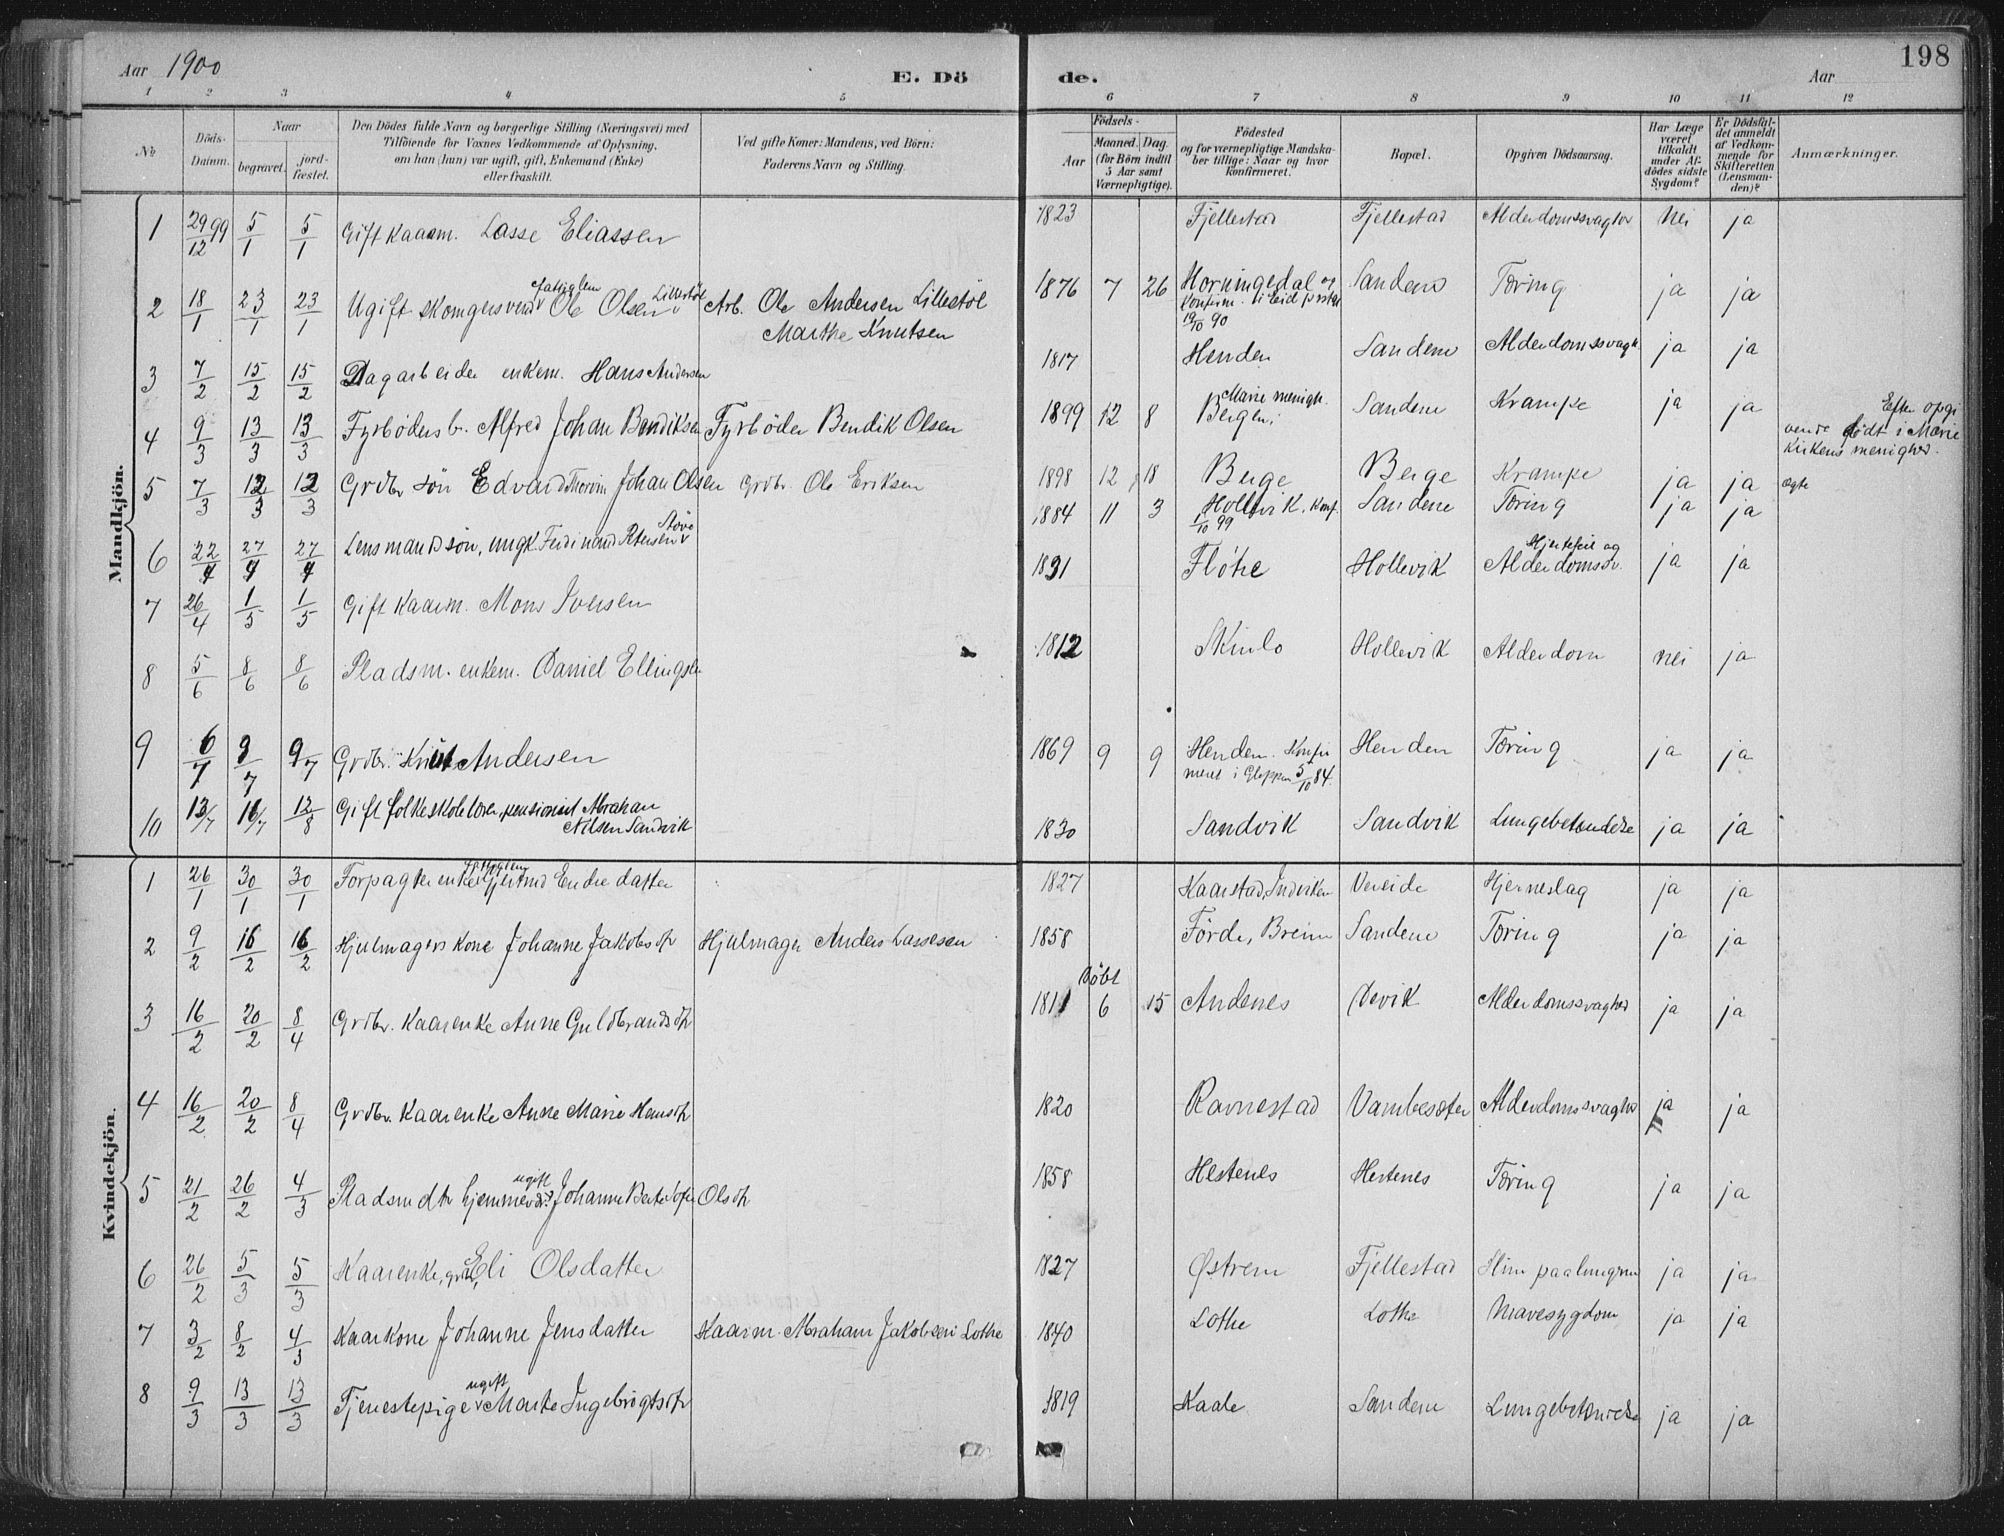 198
Aar 1900
E. Dö
de.
Aar
1 2 3 4 5 6 7 8 9 10 11 12
No
Döds-Datum.
Naar
begravet.
jord-fæstet.
Den Dödes fulde Navn og borgerlige Stilling (Næringsvei) med
Tilföiende for Voxnes Vedkommende af Oplysning,
om han (hun) var ugift, gift, Enkemand (Enke)
eller fraskilt.
Ved gifte Koner: Mandens, ved Börn:
Faderens Navn og Stilling.
Födsels-
Aar
Maaned. Dag.
(for Börn indtil
5 Aar samt
Værnepligtige).
Födested
og for værnepligtige Mandska-
ber tillige: Naar og hvor
konfirmeret.
Bopæl.
Opgiven Dödsaarsag.
Har Læge
været
tilkaldt
under Af-
dödes sidste
Sygdom?
Er Dödsfal-
det anmeldt
af Vedkom-
mende for
Skifteretten
(Lensman-
den)?
Anmærkninger.
Mandkjön.
1 29/12 99 5/1 5/1 Gift Kaarm. Lasse Eliassen 1823 Fjellestad Fjellestad Alderdomssvaghed Nei ja
2 18/1 23/1 23/1 Ugift skomgersvend fattiglem Ole Olsen Lillestöl Arb. Ole Andersen Lillestöl
Marthe Knutsen
1876 7 26 Horningdal og Sandene Tæring ja ja
konfirm. i Eid
19/10 90
3 7/2 15/2 15/2 Dagarbeider enkem. Hans Andersen 1817 Henden Sandene Alderdomssvagh. ja ja
4 9/3 13/3 13/3 Fyrböders b. Alfred Johan Bendiksen Fyrböder Bendik Olsen 1899 12 8 Marie menigh. Bergen. Sandene Krampe ja ja Efter opgi
vende födt i Marie
Kirkens menighed.
5 7/3 12/3 12/3 Grdbr sön Edvard Thorvin Johan Olsen Grdbr. Ole Eriksen 1898 12 18 Berge Berge Krampe ja ja ægte
6 22/4 27/4 27/4 Lensmandssön, ungk. Ferdinand Petersen Støve 1884 11 3 Hollevik, Konf. Sandene Tæring ja ja
1/10 99
7 26/4 1/5 1/5 Gift Kaarm. Mons Iversen 1831 Flöhe Hollevik Hjertefeil og Alderdomssv. ja ja
8 5/6 8/6 8/6 Pladsm. enkem. Daniel Ellingsen 1812 Skinlo Hollevik Alderdom nei ja
9 6/7 9/7 9/7 Grdbr. Knut Andersen 1869 9 9 Henden. Konfir Henden Tæring ja ja
meret i Gloppen 5/10 84.
10 13/7 16/7 12/8 Gift folkeskolelærer, pensionist Abraham
Nilsen Sandvik
1830 Sandvik Sandvik Lungebetændelse ja ja
Kvindekjön.
1 26/1 30/1 30/1 Forpagter enke fattiglem Gjertrud Endredatter 1827 Kaarstad, Indviken Vereide Hjerneslag ja ja
2 9/2 16/2 16/2 Hjulmagers kone Johanne Jakobsdtr Hjulmager Anders Lassesen 1858 Förde, Breim Sandene Tæring ja ja
Döbt
3 16/2 20/2 8/4 Grdbr. kaarenke Anne Guldbrandsdtr 1811 6 15 Andenes Devik Alderdomssvaghed ja ja
4 16/2 20/2 8/4 Grdbr. kaarenke Anne Marie Hansdtr 1820 Ravnestad Vambesæter Alderdomssvaghed ja ja
5 21/2 26/2 4/3 Pladsmdtr hjemmevær. ugift Johanne Berte Sofie Olsdtr 1858 Hestenes Hestenes Tæring ja ja
6 26/2 5/3 5/3 Kaarenke, grdbr, Eli Olsdatter 1827 Østrem Fjellestad Slim paa lungerne ja ja
7 3/2 8/2 4/3 Kaarkone Johanne Jensdatter Kaarm. Abraham Jakobsen Lothe 1840 Lothe Lothe Mavesygdom ja ja
8 9/3 13/3 13/3 Tjenestepige ugift Marte Ingebrigtsdtr 1819 Kaale Sandene Lungebetændelse ja ja